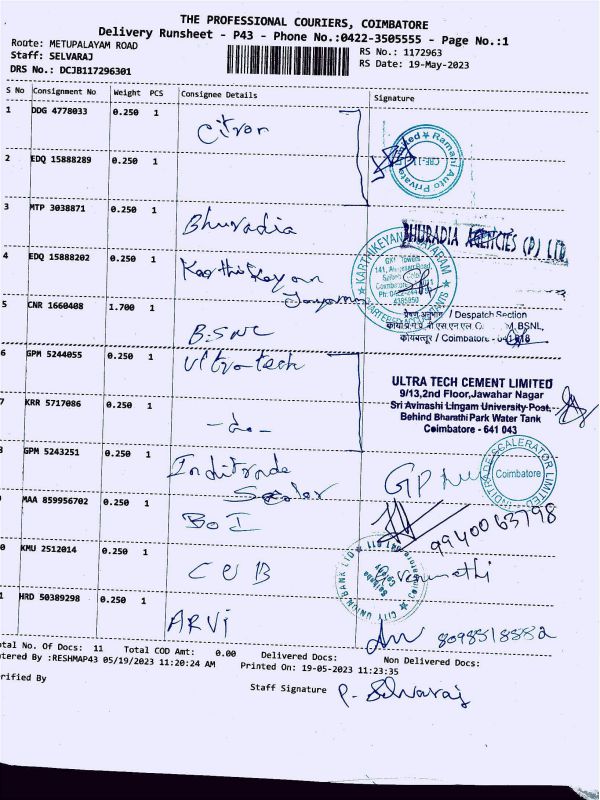 THE PROFESSIONAL COURIERS, COIMBATORE
Delivery Runsheet - P43 - Phone No.:0422-3505555 - Page No.:1
Route: METUPALAYAM ROAD
Staff: SELVARAJ
DRS No.: DCJB117296301
RS No.: 1172963
RS Date: 19-May-2023
S No Consignment No Weight PCS Consignee Details Signature
1 DDG 4778033 0.250 1 Citron
2 EDQ 15888289 0.250 1
Ramani Auto Private
3 MTP 3038871 0.250 1 Bhuradia
BHURADIA AGENCIES (P) LTD
4 EDQ 15888202 0.250 1 Karthikeyan
KARTHIKEYAN JAYARAM
CHARTERED ACCOUNTANTS
5 CNR 1660408 1.700 1 BSNL
प्रेषण अनुभाग / Despatch Section
BSNL,
कोयंबत्तूर / Coimbatore -
6 GPM 5244055 0.250 1 Ultratech
ULTRA TECH CEMENT LIMITED
9/13,2nd Floor,Jawahar Nagar
Sri Avinashi Lingam University Post,
Behind Bharathi Park Water Tank
Coimbatore - 641 043
7 KRR 5717086 0.250 1 -do-
GPM 5243251 0.250 1 Inditrade
Coimbatore
MAA 859956702 0.250 1 BOI
9940063798
0 KMU 2512014 0.250 1 CUB
CITY UNION BANK LTD
1 HRD 50389298 0.250 1 ARVI
8098518882
otal No. Of Docs: 11 Total COD Amt: 0.00 Delivered Docs: Non Delivered Docs:
ntered By :RESHMAP43 05/19/2023 11:20:24 AM Printed On: 19-05-2023 11:23:35
rified By
Staff Signature P. Selvaraj